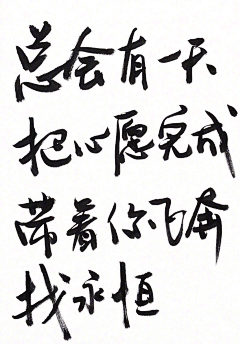 总会有一天
把心愿完成
带着你飞奔
找永恒